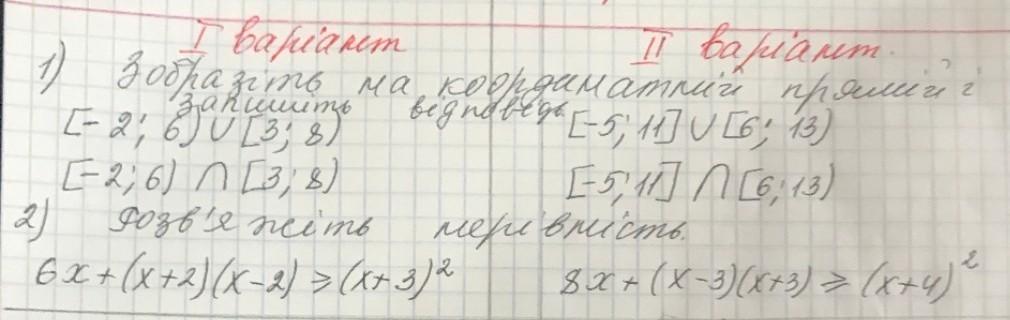 I варіант II варіант.
1) Зобразіть на координатній прямій і
запишіть відповідь
[-2; 6) ∪ [3; 8) [-5; 11] ∪ [6; 13)
[-2; 6) ∩ [3; 8) [-5; 11] ∩ [6; 13)
2) Розв'яжіть нерівність.
6x + (x+2)(x-2) ≥ (x+3)² 8x + (x-3)(x+3) ≥ (x+4)²